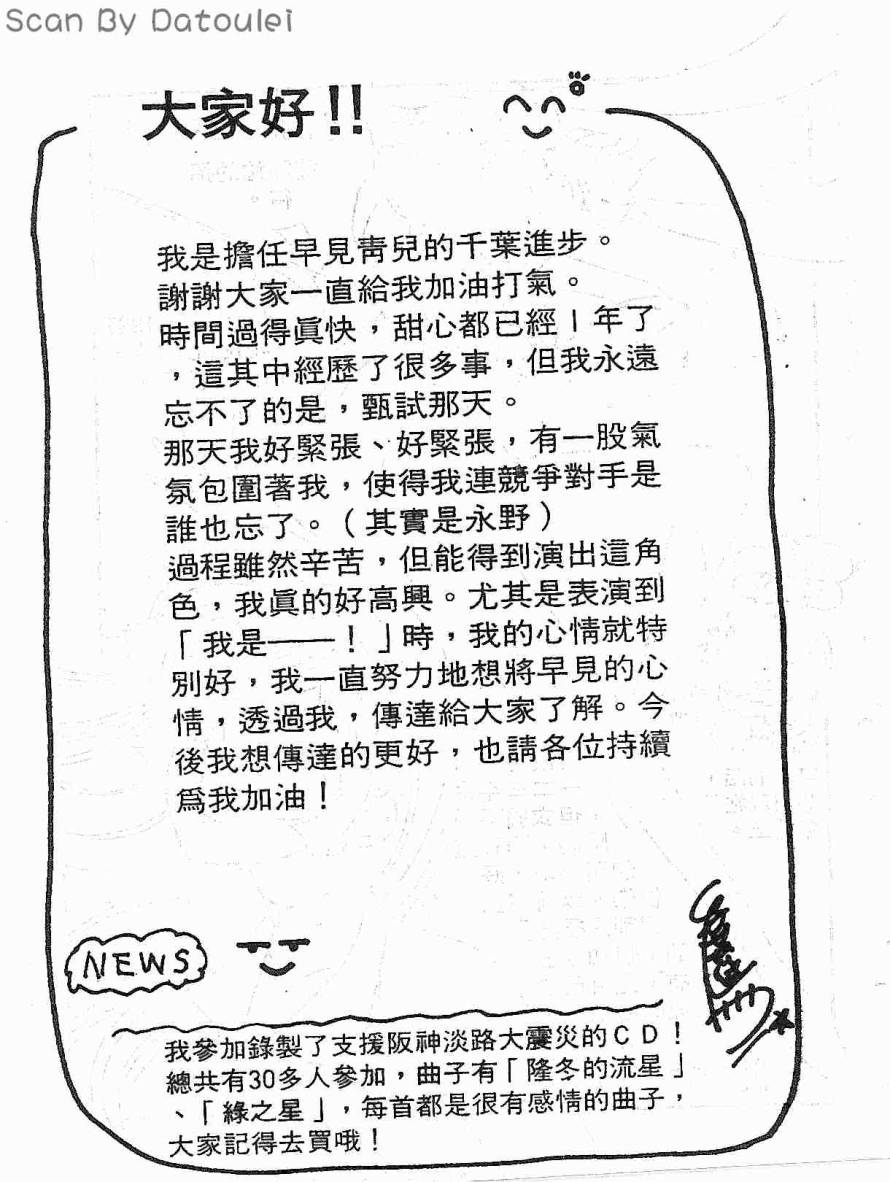 Scan By Datoulei
大家好!!
我是擔任早見靑兒的千葉進步。
謝謝大家一直給我加油打氣。
時間過得眞快，甜心都已經1年了
，這其中經歷了很多事，但我永遠
忘不了的是，甄試那天。
那天我好緊張、好緊張，有一股氣
氛包圍著我，使得我連競爭對手是
誰也忘了。（其實是永野）
過程雖然辛苦，但能得到演出這角
色，我眞的好高興。尤其是表演到
「我是──！」時，我的心情就特
別好，我一直努力地想將早見的心
情，透過我，傳達給大家了解。今
後我想傳達的更好，也請各位持續
爲我加油！
NEWS
我參加錄製了支援阪神淡路大震災的CD！
總共有30多人參加，曲子有「隆冬的流星」
、「綠之星」，每首都是很有感情的曲子，
大家記得去買哦！